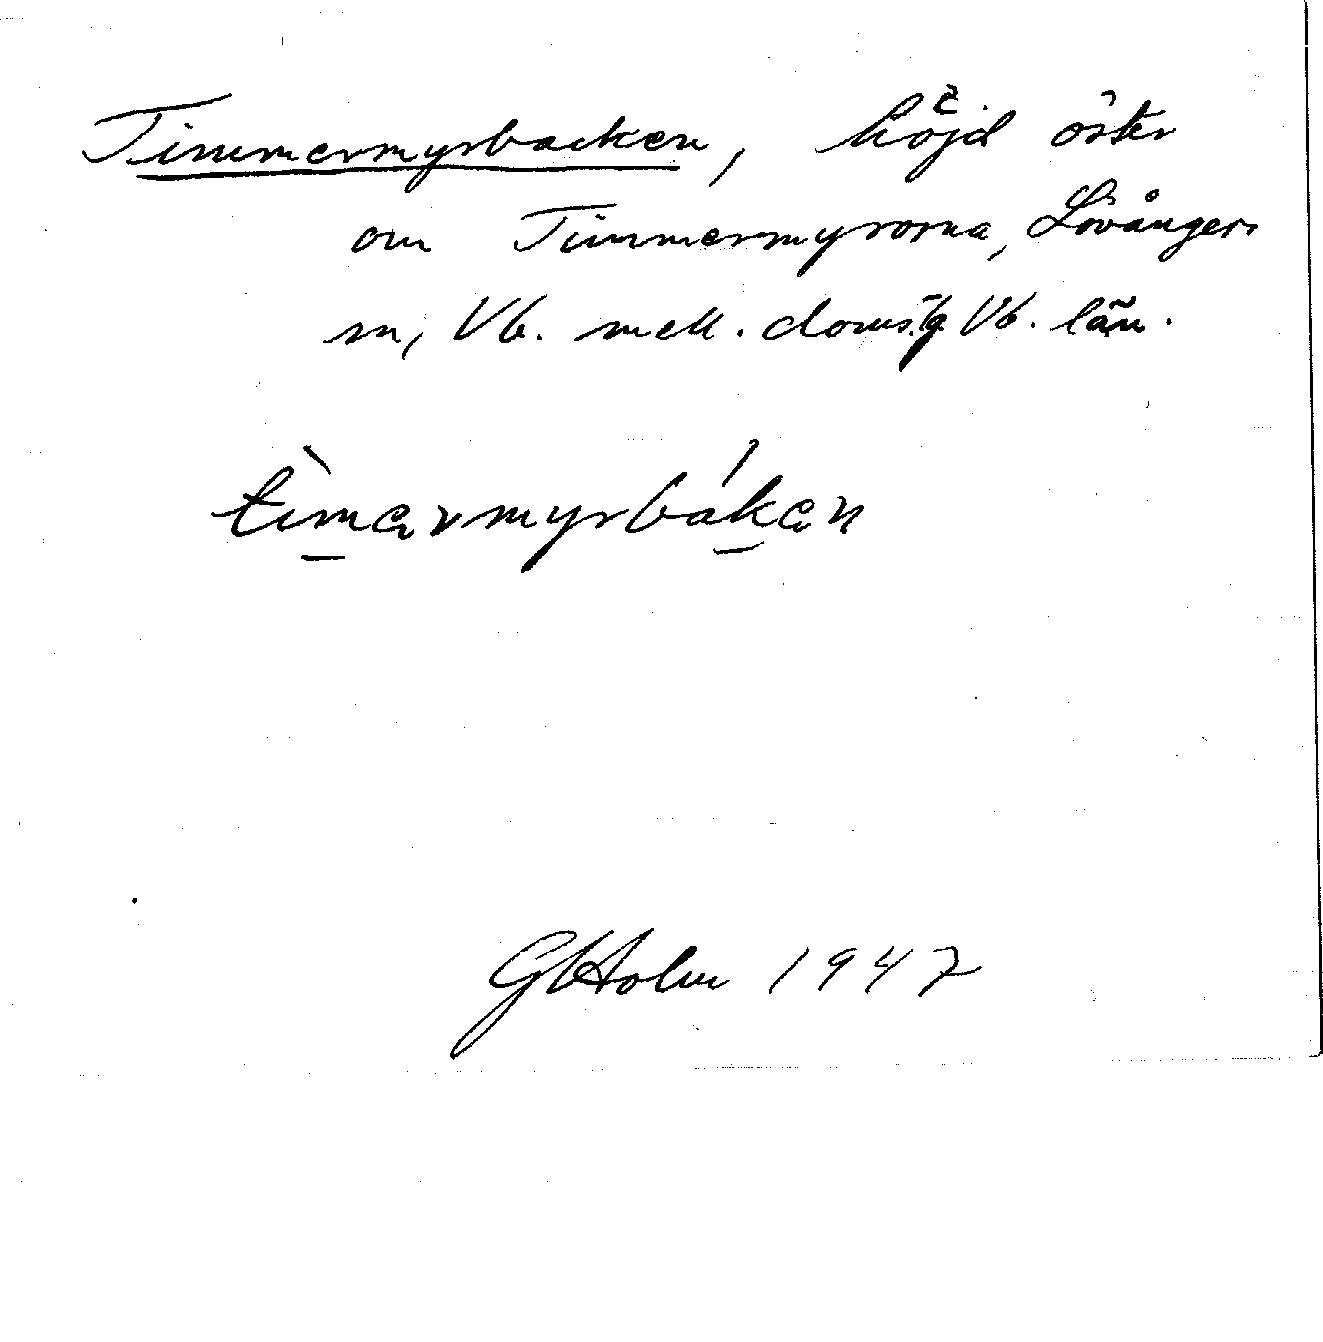 Timmermyrbacken, höjd öster
om Timmermyrorna, Lövångers
sn, Vb. mell. doms.g Vb. län.
tìmərmyrbákən
GHolm 1947